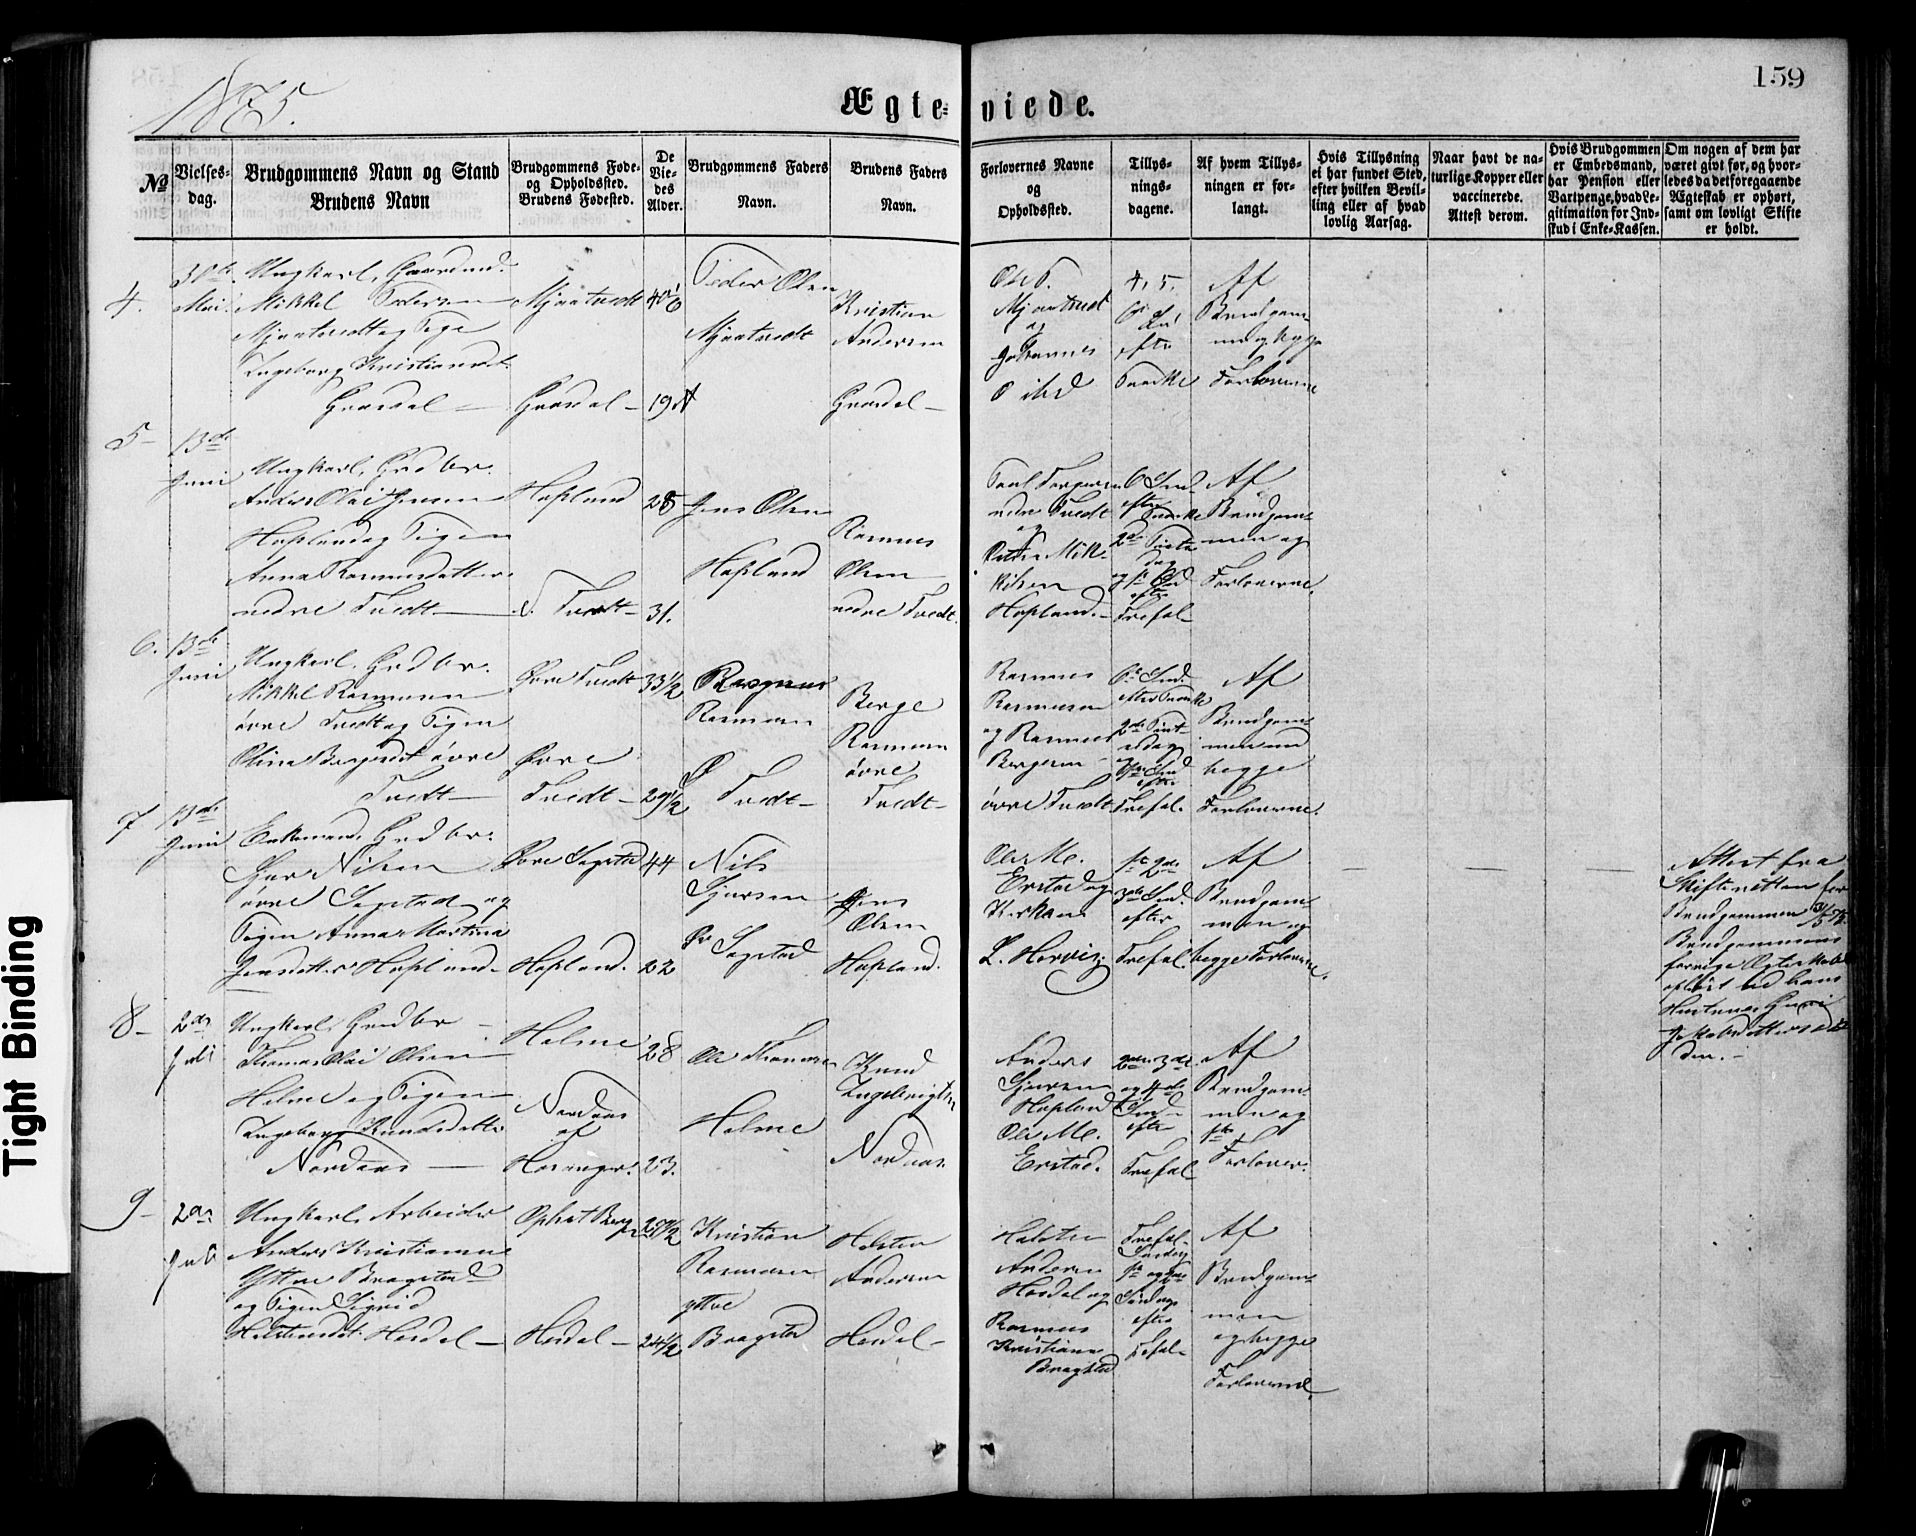 1875.
Ægte=
viede.
159
№
Vielses-
dag.
Brudgommens Navn og Stand
Brudens Navn
Brudgommens Føde-
og Opholdssted.
Brudens Fødested.
De
Vie-
des
Alder.
Brudgommens Faders
Navn.
Brudens Faders
Navn.
Forlovernes Navne
og
Opholdssted.
Tillys-
nings-
dagene.
Af hvem Tillys-
ningen er for-
langt.
Hvis Tillysning
ei har fundet Sted,
efter hvilken Bevil-
ling eller af hvad
lovlig Aarsag.
Naar havt de na-
turlige Kopper eller
vaccinerede.
Attest derom.
Hvis Brudgommen
er Embedsmand,
har Pension eller
Vartpenge, hvad Le-
gitimation for Ind-
skud i Enke-Kassen.
Om nogen af dem har
været givt før, og hvor-
ledes da det foregaaende
Ægteskab er ophørt,
samt om lovligt Skifte
er holdt.
4.
Mai
Ungkarl,
Mikkel Pedersen
Mjaatvedt og Pige
Ingeborg Kristiansdt.
Mjaatvedt
19
Peder Olsen
Mjaatvedt
Kristian
Andersen
Ole P.
Mjaatvedt
og
Johannes
4, 5,
efter
Paaske
Af
Brudgom-
men og begge
Forloverne
5-
13de
Juni
Ungkarl, Grdbr.
Anders Olai Jensen
Hopland og Pigen
Anna Rasmusdatter
nedre Tvedt
Hopland
n. Tvedt
28
31.
Jens Olsen
Hopland
Rasmus
Olsen
nedre Tvedt.
nedre Tvedt
og
Peter Mik-
kelsen
Hopland.
6 Sønd.
efter
Paaske
2den Pintse
dag
og 1ste Sønd
efter
Trefol.
Af
Brudgom-
men og
Forloverne.
6.
13de
Juni
Ungkarl, Grdbr.
Mikkel Rasmussen
øvre Tvedt og Pigen
Olina Bergesdt øvre
Tvedt
Øvre Tvedt
Øvre
Tvedt
33½
29½
Rasmus
Rasmussen
Ø
Tvedt
Berge
Rasmussen
øvre
Tvedt
Rasmus
Rasmussen
og Rasmus
Bergesen
øvre Tvedt
6te Sønd.
efter Paaske
2den Pint-
sedag
og
1ste Sønd
efter
Trefol.
Af
Brudgom-
men med
begge
Forloverne.
7
13de
Juni
Enkemand, Grdbr.
Nilsen
øvre Sagstad og
Pigen Anna Martina
Jensdatter Hopland.
Øvre Sagstad
Hopland.
44
22
Nils
Gjursen
Øv
Sagstad
Jens
Olsen
Hopland.
Ole M.
Erstad og
1ste 2den
3die Sønd.
efter
Trefol.
Af
Brudgom-
men og
begge Forloverne.
Attest fra
Skifteretten for
Brudgommen
Brudgommens
forrige Ægteskab
ophørt ved hans
Hustrues
Jakobsdatters Dø
den.
8-
2den
Juli
Ungkarl, Grdbr
Thomas Olai Olsen
Holme og Pigen
Ingeborg Knudsdatter
Nordaas
Holme
Nordaas
af
28
23.
Ole Thomassen
Holme
Knud
Ingebrigtsen
Nordaas.
Anders
Gjursen
Hopland
Ole M.
Erstad.
2den 3die
og 4de
Sønd
efter
Trefol
Af
Brudgom-
men og
1ste
Forlover.
9-
2den
Juli
Ungkarl, Arbeider
Anders Kristiansen
Yttre Bragstad
og Pigen Sigrid
Holstensdt. Hosdal
Ophst Berge
Hosdal
24½
Kristian
Rasmussen
yttre
Bragstad
Holsten
Andersen
Hosdal
Holsten
Andersen
Hosdal og
Rasmus
Kristiansen
Bragstad
Trefol.
Søndag
1ste og 2den
Søndage
efter
Trefol.
Af
Brudgom-
men
og begge
Forloverne.
Tight Binding